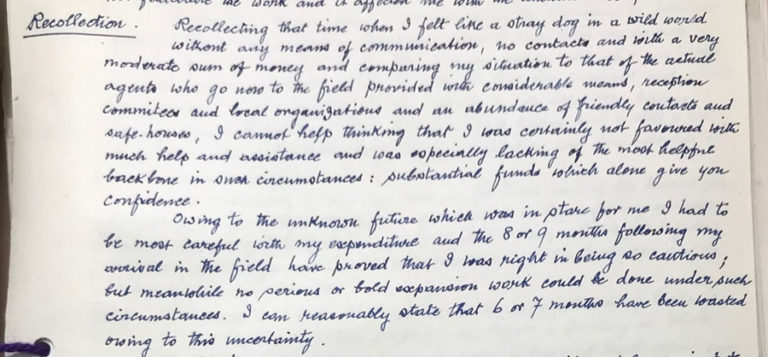 the work and it affected me with the
Recollection. Recollecting that time when I felt like a stray dog in a wild world
without any means of communication, no contacts and with a very
moderate sum of money and comparing my situation to that of the actual
agents who go now to the field provided with considerable means, reception
commitees and local organizations and an abundance of friendly contacts and
safe-houses, I cannot help thinking that I was certainly not favoured with
much help and assistance and was especially lacking of the most helpful
backbone in such circumstances: substantial funds which alone give you
confidence.
Owing to the unknown future which was in store for me I had to
be most careful with my expenditure and the 8 or 9 months following my
arrival in the field have proved that I was right in being so cautious;
but meanwhile no serious or bold expansion work could be done under such
circumstances. I can reasonably state that 6 or 7 months have been wasted
owing to this uncertainty.